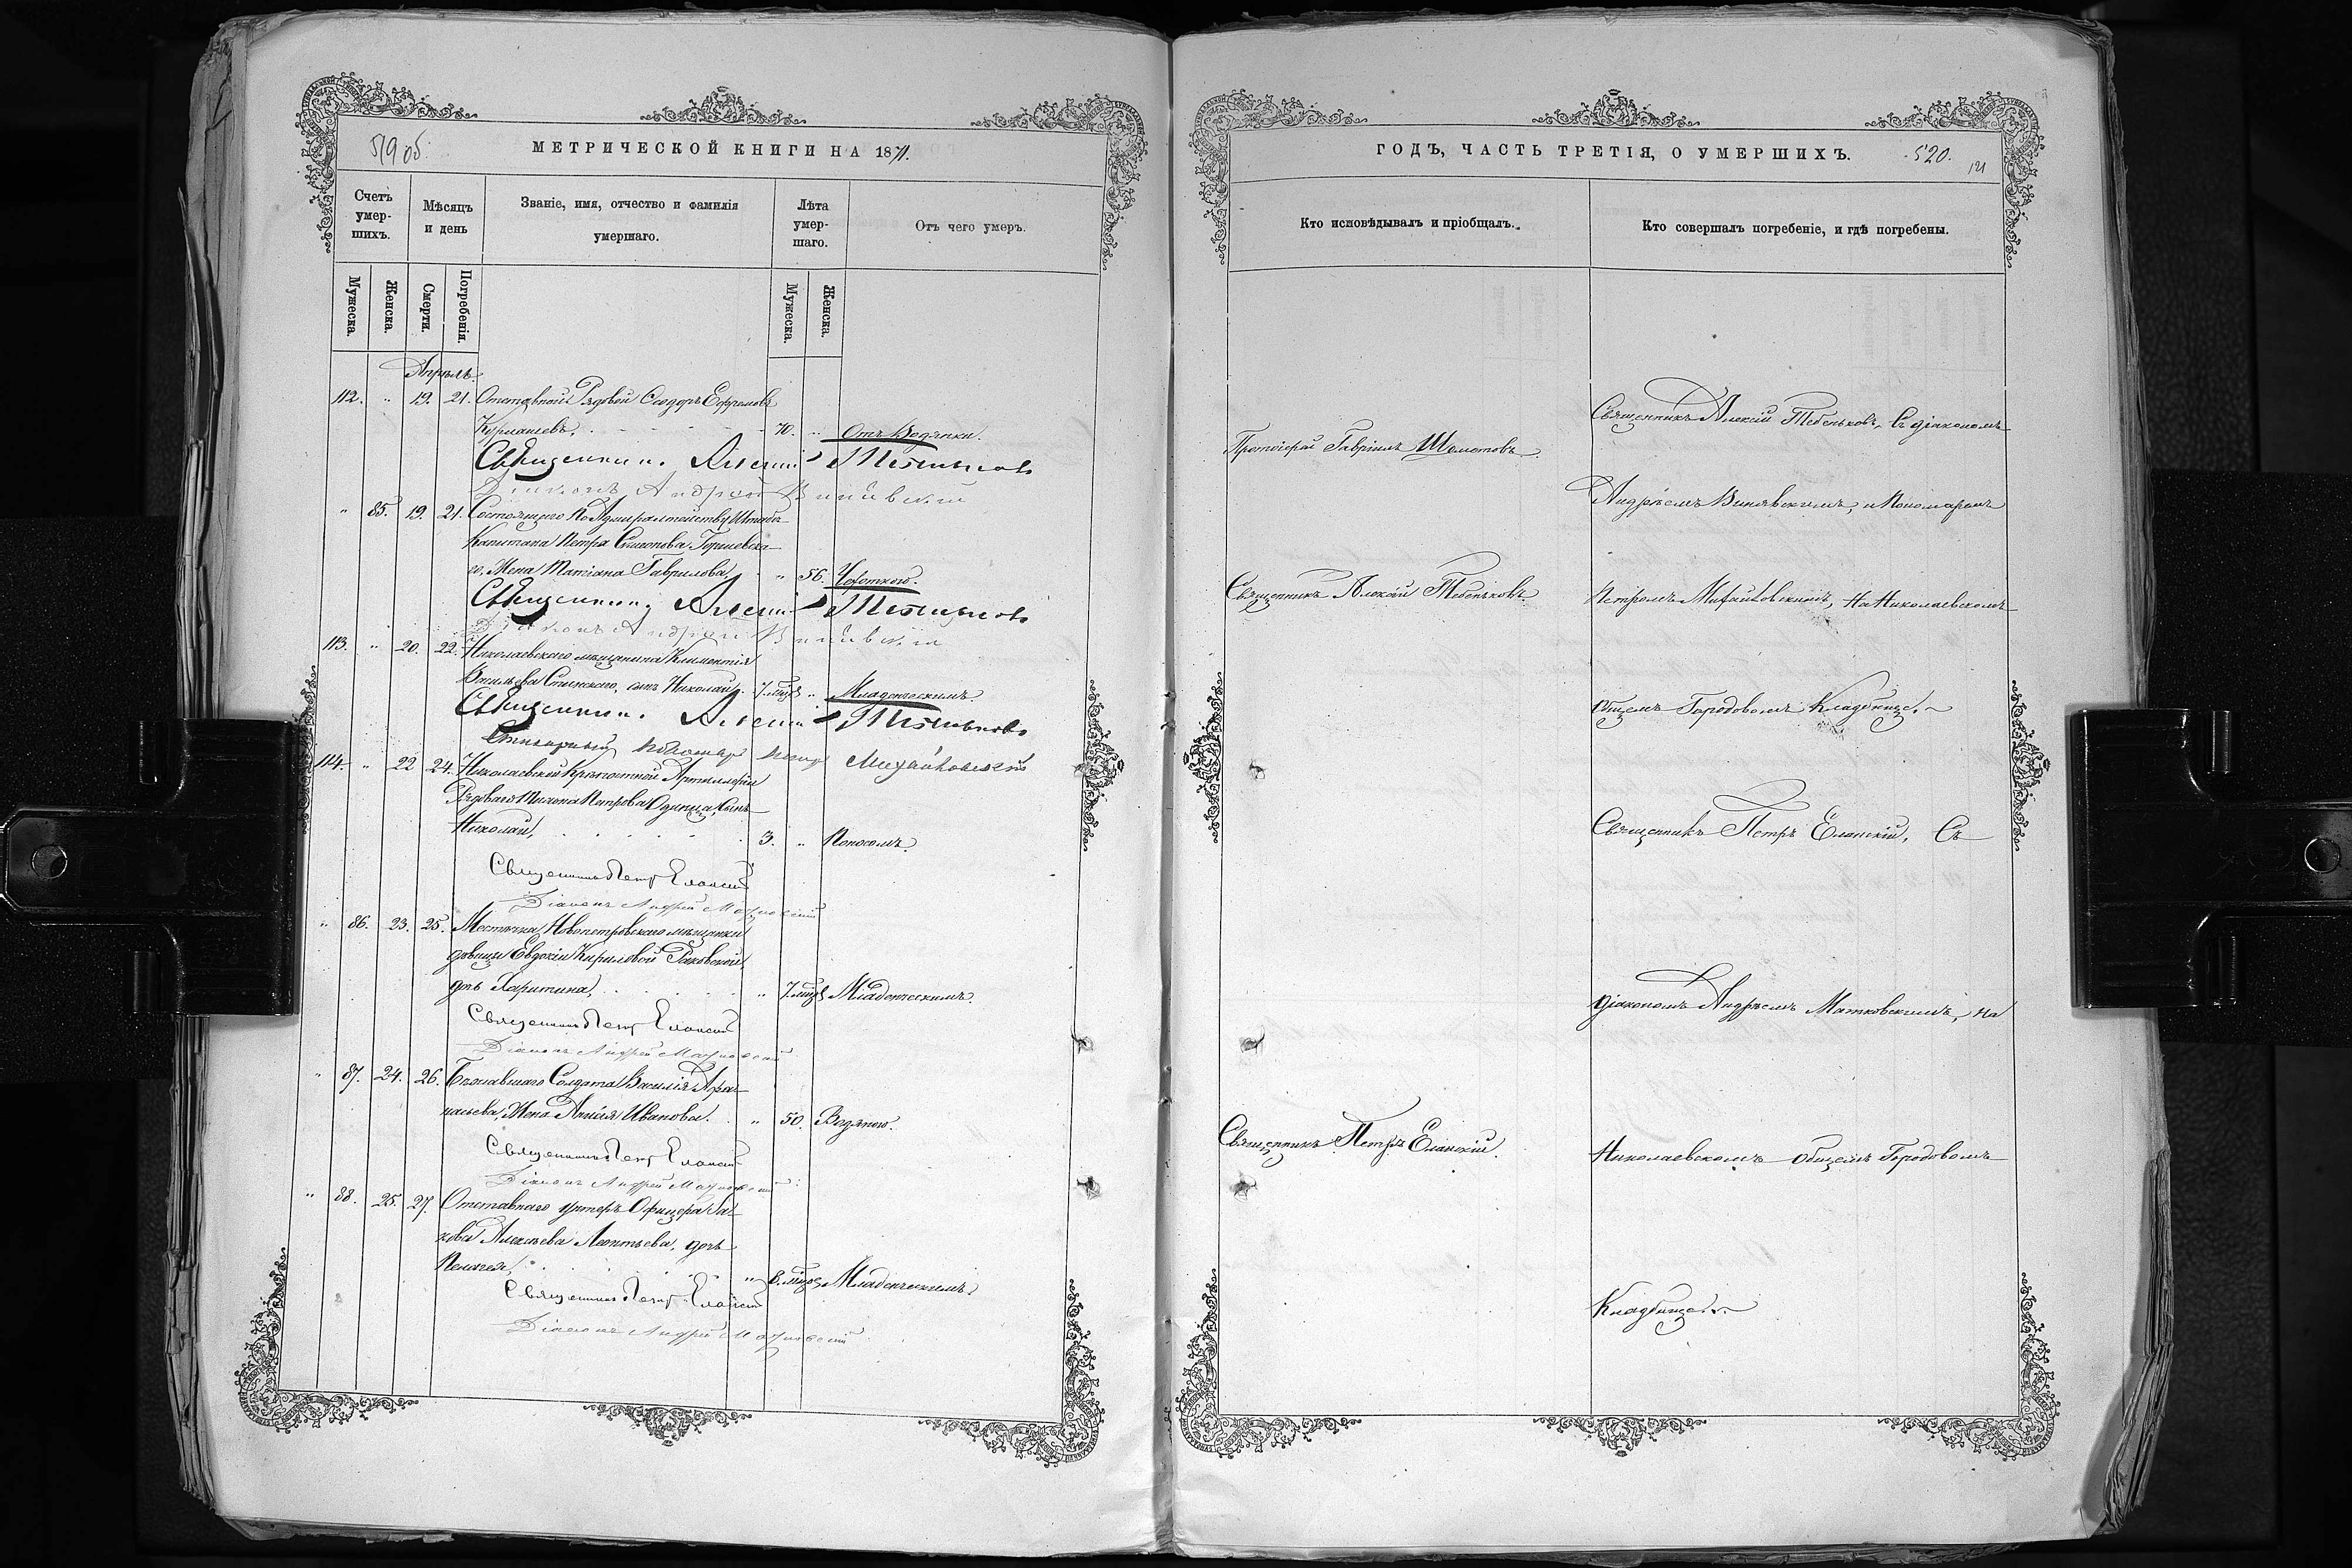 519 об.
МЕТРИЧЕСКОЙ КНИГИ НА 1871.
Счетъ умер-шихъ.
Мѣсяцъ и день
Званіе, имя, отчество и фамилія умершаго.
Лѣта умер-шаго.
Отъ чего умеръ.
Мужеска. Женска. Смерти. Погребенія. Мужеска. Женска.
Апрѣль.
112. " 19. 21. Отставной Рядовой Ѳеодоръ Ефремовъ
70. " Отъ Водянки.
Священникъ Алексій Тебеньковъ
Діаконъ Андрей
" 85. 19. 21. Состоящаго по Адмиралтейству Штабсъ
Капитана Петра Симонова
го, Жена Татіана Гаврилова, " 56. Чахоткою.
Священникъ Алексій Тебеньковъ
Діаконъ Андрей
113. " 20. 22. Николаевскаго мѣщанина Климентія
Васильева сынъ Николай, 7. мцв " Младенческимъ.
Священникъ Алексій Тебеньковъ
Пономарь Петръ Михайловскій
114. " 22 24. Николаевской Крѣпостной Артиллеріи
Рядоваго Тихона Петрова Сынъ
Николай, 3. " Поносомъ.
Священникъ Петръ Еланскій
Діаконъ Андрей
" 86. 23. 25. Мѣстечка Новопетровскаго мѣщанки
дѣвицы Евдокіи Кириловой Раковской,
дчь Харитина, " 7. мцв Младенческимъ.
Священникъ Петръ Еланскій
Діаконъ Андрей
" 87. 24. 26. Бѣжавшаго Солдата Василія Афа-
насьева, Жена Анисія Иванова. " 50. Водяною.
Священникъ Петръ Еланскій
Діаконъ Андрей
" 88. 25. 27. Отставнаго унтеръ Офицера Іа-
кова Алексѣева Леонтьева, дочь
Пелагея, " 8. мцв Младенческимъ.
Священникъ Петръ Еланскій
Діаконъ Андрей
ГОДЪ, ЧАСТЬ ТРЕТІЯ, О УМЕРШИХЪ.
520.
121
Кто исповѣдывалъ и пріобщалъ.
Кто совершалъ погребеніе, и гдѣ погребены.
Протоіерей Гавріилъ
Священникъ Алексій Тебеньковъ
Священникъ Петръ Еланскій.
Священникъ Алексій Тебеньковъ, съ діакономъ
Андреемъ и Пономаремъ
Петромъ Михайловскимъ, На Николаевскомъ
общемъ Городовомъ Кладбищѣ.
Священникъ Петръ Еланскій, Съ
діакономъ Андреемъ на
Николаевскомъ общемъ Городовомъ
Кладбищѣ.